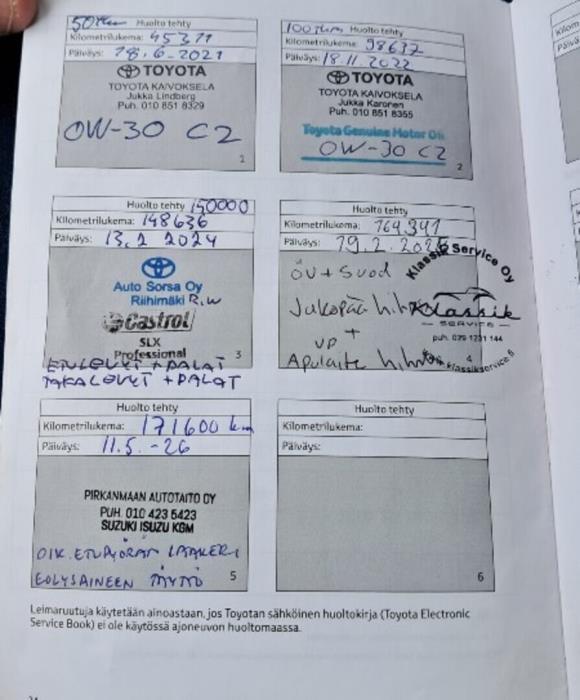 50tkm Huolto tehty
Kilometrilukema: 45311
Päiväys: 18.6-2021
TOYOTA
TOYOTA KAIVOKSELA
Jukka Lindberg
Puh. 010 851 8329
0W-30 C2
1
100tkm Huolto tehty
Kilometrilukema: 98637
Päiväys: 18.11.2022
TOYOTA
TOYOTA KAIVOKSELA
Jukka Karonen
Puh. 010 851 8355
Toyota Genuine Motor Oil
0W-30 C2
2
Huolto tehty 150000
Kilometrilukema: 148636
Päiväys: 13.2 2024
Auto Sorsa Oy
Riihimäki R.W
Castrol
SLX
Professional
3
ETULEVYT + PALAT
TAKALEVYT + PALAT
Huolto tehty
Kilometrilukema: 164341
Päiväys: 19.2.
Klassik Service Oy
ÖV + Suod
Jakopää hihna
Klassik
SERVICE
puh. 029 1231 144
+
VP
4
Apulaite hihna
Huolto tehty
Kilometrilukema: 171600 km
Päiväys: 11.5.-26
PIRKANMAAN AUTOTAITO OY
PUH. 010 423 5423
SUZUKI ISUZU KGM
OIK. ETUPYÖRÄN LAAKERI
EOLYSAINEEN TÄYTTÖ
5
Huolto tehty
Kilometrilukema:
Päiväys:
6
Leimaruutuja käytetään ainoastaan, jos Toyotan sähköinen huoltokirja (Toyota Electronic
Service Book) ei ole käytössä ajoneuvon huoltomaassa.